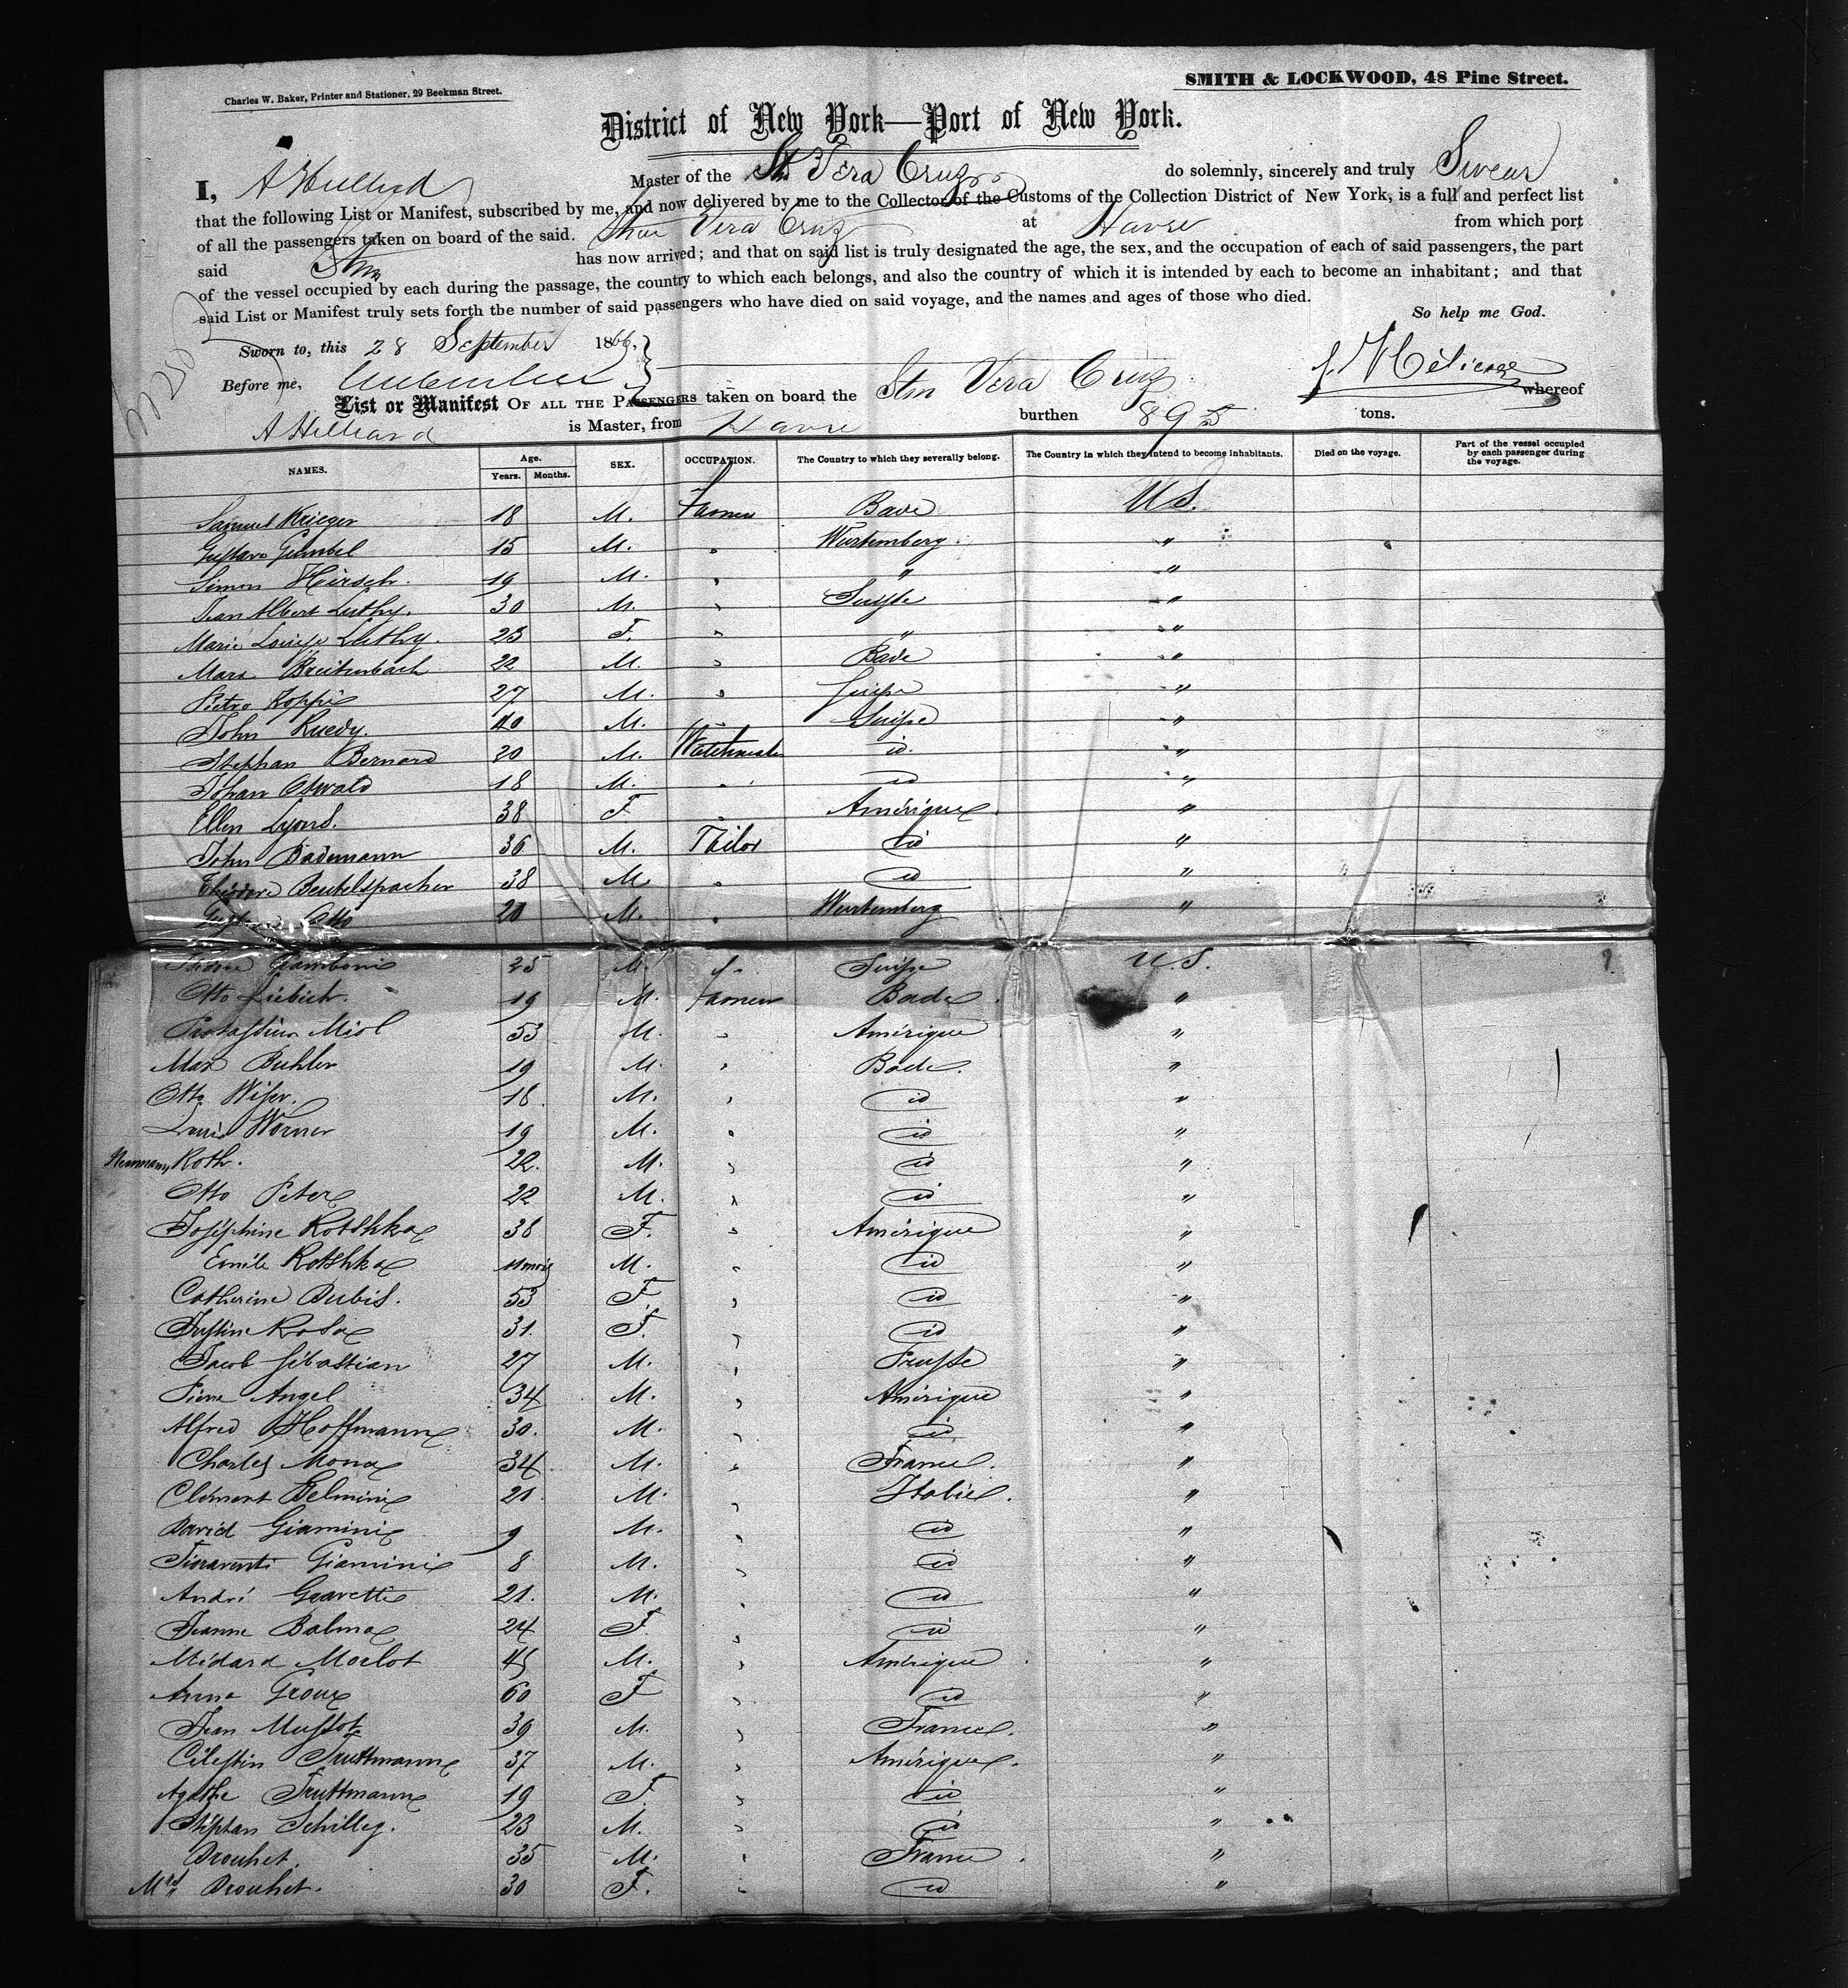 Charles W. Baker, Printer and Stationer, 29 Beekman Street.
SMITH & LOCKWOOD, 48 Pine Street.
District of New York—Port of New York.
I, A Hilliard Master of the Stm Vera Cruz do solemnly, sincerely and truly Swear
that the following List or Manifest, subscribed by me, and now delivered by me to the Collector of the Customs of the Collection District of New York, is a full and perfect list
of all the passengers taken on board of the said. Vera Cruz at Havre from which port
said Stm has now arrived; and that on said list is truly designated the age, the sex, and the occupation of each of said passengers, the part
of the vessel occupied by each during the passage, the country to which each belongs, and also the country of which it is intended by each to become an inhabitant; and that
said List or Manifest truly sets forth the number of said passengers who have died on said voyage, and the names and ages of those who died.
So help me God.
Sworn to, this 28 September 1866,
Before me,
List or Manifest OF ALL THE PASSENGERS taken on board the Stm Vera Cruz whereof
A Hilliard is Master, from Havre burthen 895 tons.
NAMES. Age. Years. Months. SEX. OCCUPATION. The Country to which they severally belong. The Country in which they intend to become inhabitants. Died on the voyage. Part of the vessel occupied by each passenger during the voyage.
Samuel Krieger 18 M. Farmer Bade U S.
Gustave Gumbel 15 M. " Wurtemberg "
Simon Hirsch. 19 M. " " "
Jean Albert Luthy. 30 M. " Suisse "
Marie Louise Luthy. 23 F. " " "
Marx Breitenbach 22 M. " Bade "
Pietro Koppi 27 M. " Suisse "
John Ruedy. 40 M. " Suisse "
Stephan Bernard 20 M. Watchmaker id. "
Johan Oswald 18 M. " id "
Ellen Lyons. 38 F. " Amérique "
John Bademann 36 M. Tailor id "
Théodore Beutelspacher 38 M " id "
Otto 20 M. " Wurtemberg "
Giamboni 25 M. " Suisse U.S.
Otto Liebich. 19 M. Farmer Bade "
Miol 53 M. " Amérique "
Max Buhler 19 M. " Bade. "
Otto Wiser. 18 M. " id "
Louis Worner 19 M. " id "
Hermann Roth. 22. M. " id "
Otto Peter 22 M. " id "
Joséphine Rotshka 38 F. " Amérique "
Emile Rotshka 11 mois M. " id "
Catherine Dubis. 53 F. " id "
Justine Rosa 31. F. " id "
Jacob Sébastian 27 M. " Prusse "
Pierre Angel 34 M. " Amérique "
Alfred Hoffmann 30. M. " id "
Charles Mona 34 M. " France. "
Clément Belmini 21 M. " Italie. "
David Giamini 9 M. " id "
Fioravanti Giamini 8 M. " id "
André Gravetti 21. M. " id "
Jeanne Balma 24 F. " id "
Médard Morlot 45 M. " Amérique "
Anna Groux 60 F " id "
Jean Mussot 39 M. " France. "
Célestin Truttmann 37 M. " Amérique. "
Agathe Truttmann 19 F. " id "
Stéphan Schilleg. 23 M. " id "
Drouhet. 35 M. " France. "
Mrs Drouhet. 30 F. " id "